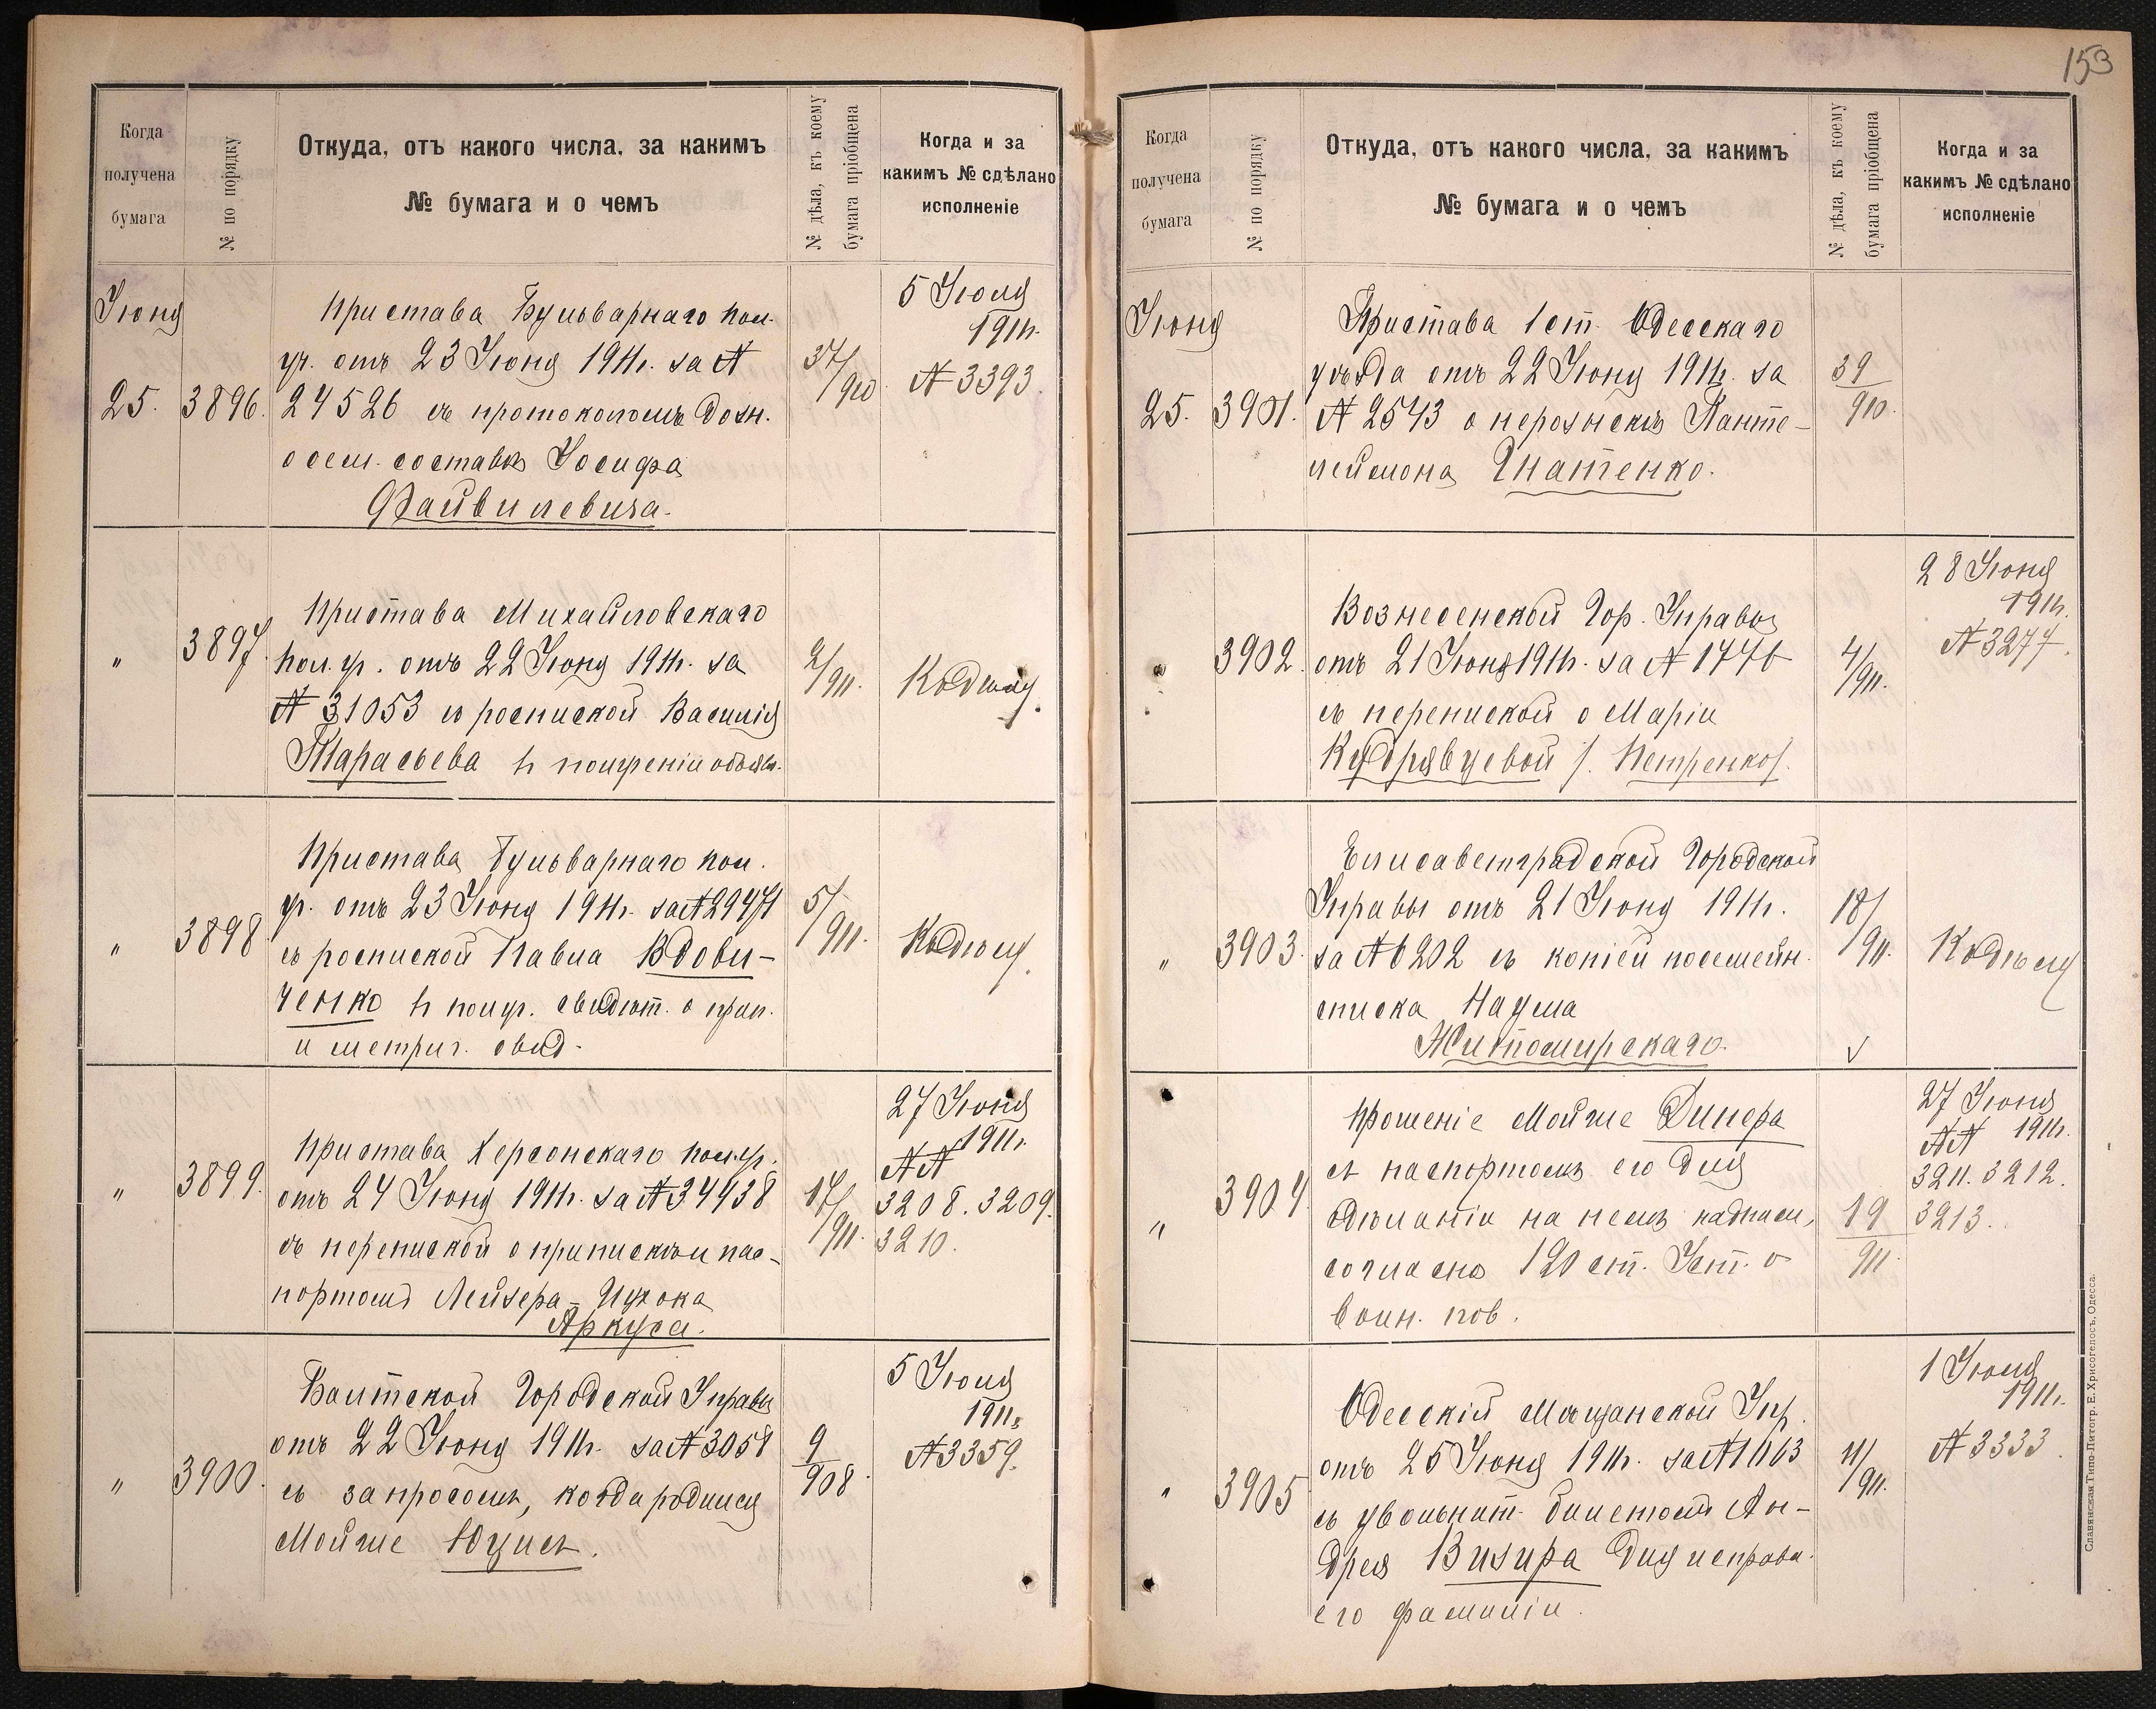 153
Когда
получена
бумага
№ по порядку
Откуда, отъ какого числа, за какимъ
№ бумага и о чемъ
№ дѣла, къ коему
бумага пріобщена
Когда и за
какимъ № сдѣлано
исполненіе
Іюня
25.
3896.
Пристава Бульварнаго пол.
уч. отъ 23 Іюня 1911г. за №
24526 съ протоколомъ дозн.
о сем. составѣ Іосифа
Файвилевича.
37/910
5 Іюля
1911г.
№ 3393.
"
3897.
Пристава Михайловскаго
пол. уч. отъ 22 Іюня 1911г. за
№ 31053 съ роспиской Василія
Тарасьева в полученіи объяв.
2/911.
Къ дѣлу.
"
3898
Пристава Бульварнаго пол.
уч. отъ 23 Іюня 1911г. за №
съ роспиской Павла Вдови-
ченко в получ. свидѣт. о прип.
и метрич. свид.
5/911.
Къ дѣлу.
"
3899.
Пристава Херсонскаго пол. уч.
отъ 24 Іюня 1911г. за № 34438
съ перепиской о припискѣ и пас-
портомъ Лейзера-Ицхока
Аркуса.
17/911.
27 Іюня
1911г.
№№
3208. 3209.
3210.
"
3900.
Балтской Городской Управы
отъ 22 Іюня 1911г. за № 3058
съ запросомъ, когда родился
Мойше Юцис.
9/908.
5 Іюля
1911г.
№ 3359.
Когда
получена
бумага
№ по порядку
Откуда, отъ какого числа, за какимъ
№ бумага и о чемъ
№ дѣла, къ коему
бумага пріобщена
Когда и за
какимъ № сдѣлано
исполненіе
Іюня
25.
3901.
Пристава 1 ст. Одесскаго
уѣзда отъ 22 Іюня 1911г. за
№ 2543 о нерозыскѣ Панте-
леймона Игнатенко.
39/910.
"
3902.
Вознесенской Гор. Управы
отъ 21 Іюня 1911г. за №
съ перепиской о Маріи
Кудрявцевой /. Петренко/.
4/911.
28 Іюня
1911г.
№ 3277.
"
3903.
Елисаветградской Городской
Управы отъ 21 Іюня 1911г.
за № 6202 съ копіей посемейн.
списка Наума
Житомирскаго.
18/911.
Къ дѣлу
"
3904
Прошеніе Мойше Динера
съ паспортомъ его для
сдѣланія на немъ надписи,
согласно 120 ст. Уст. о
воин. пов.
19/911.
27 Іюня
№№ 1911г.
3211. 3212.
3213.
"
3905
Одесскій Мѣщанской Упр.
отъ 25 Іюня 1911г. за № 1163
съ увольнит. билетомъ Ан-
дрея Визира для исправл.
его фамиліи.
11/911.
1 Іюля
1911г.
№ 3333.
Славянская Типо-Литогр. Е. Хрисогелосъ, Одесса.